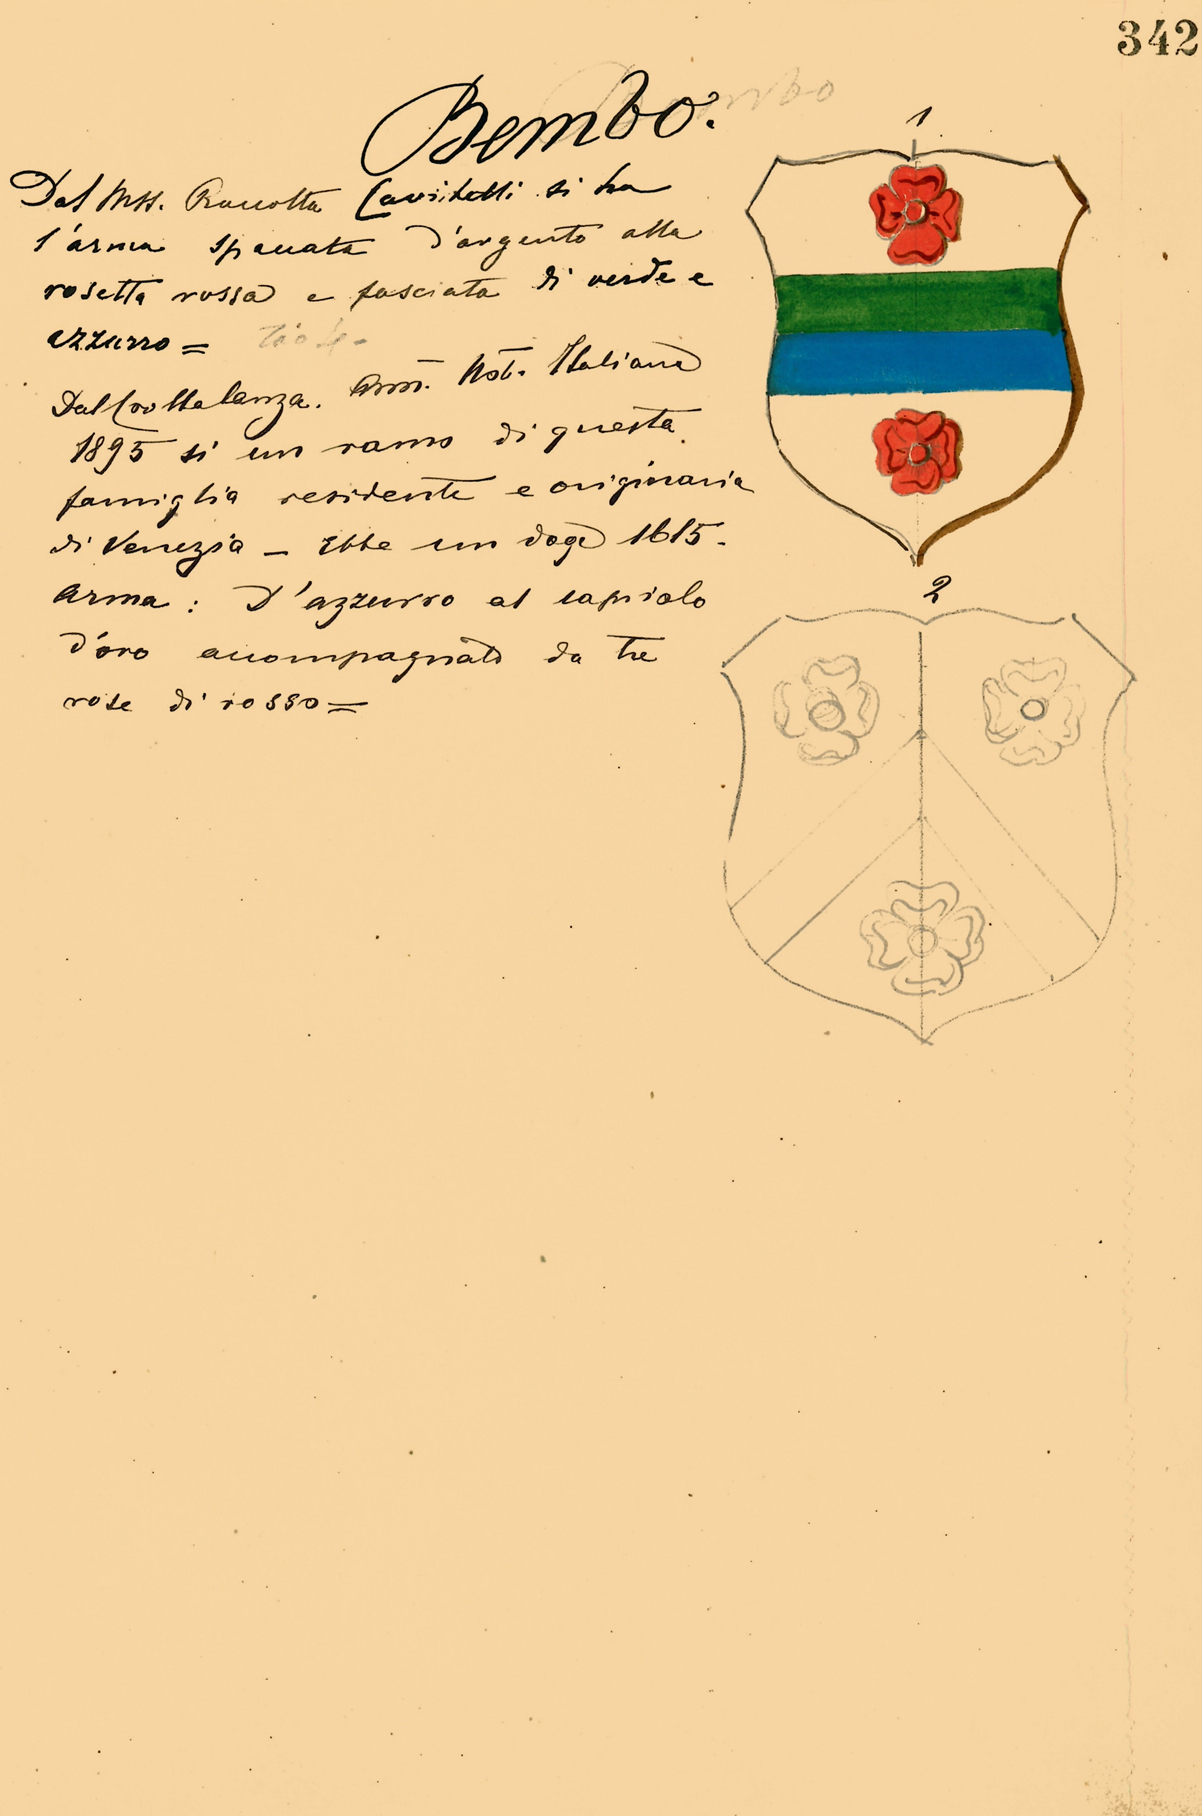 342
Bembo.
1
Dal Mss. Raccolta Cavitelli si ha
l'arma spaccata d'argento alla
rosetta rossa e fasciata di verde e
azzurro =
Dal Crollalanza. Ann. Nob. Italiana
1895 si un ramo di questa
famiglia residente e originaria
di Venezia - Ebbe un doge 1615.
Arma: D'azzurro al capriolo
d'oro accompagnato da tre
rose di rosso =
2